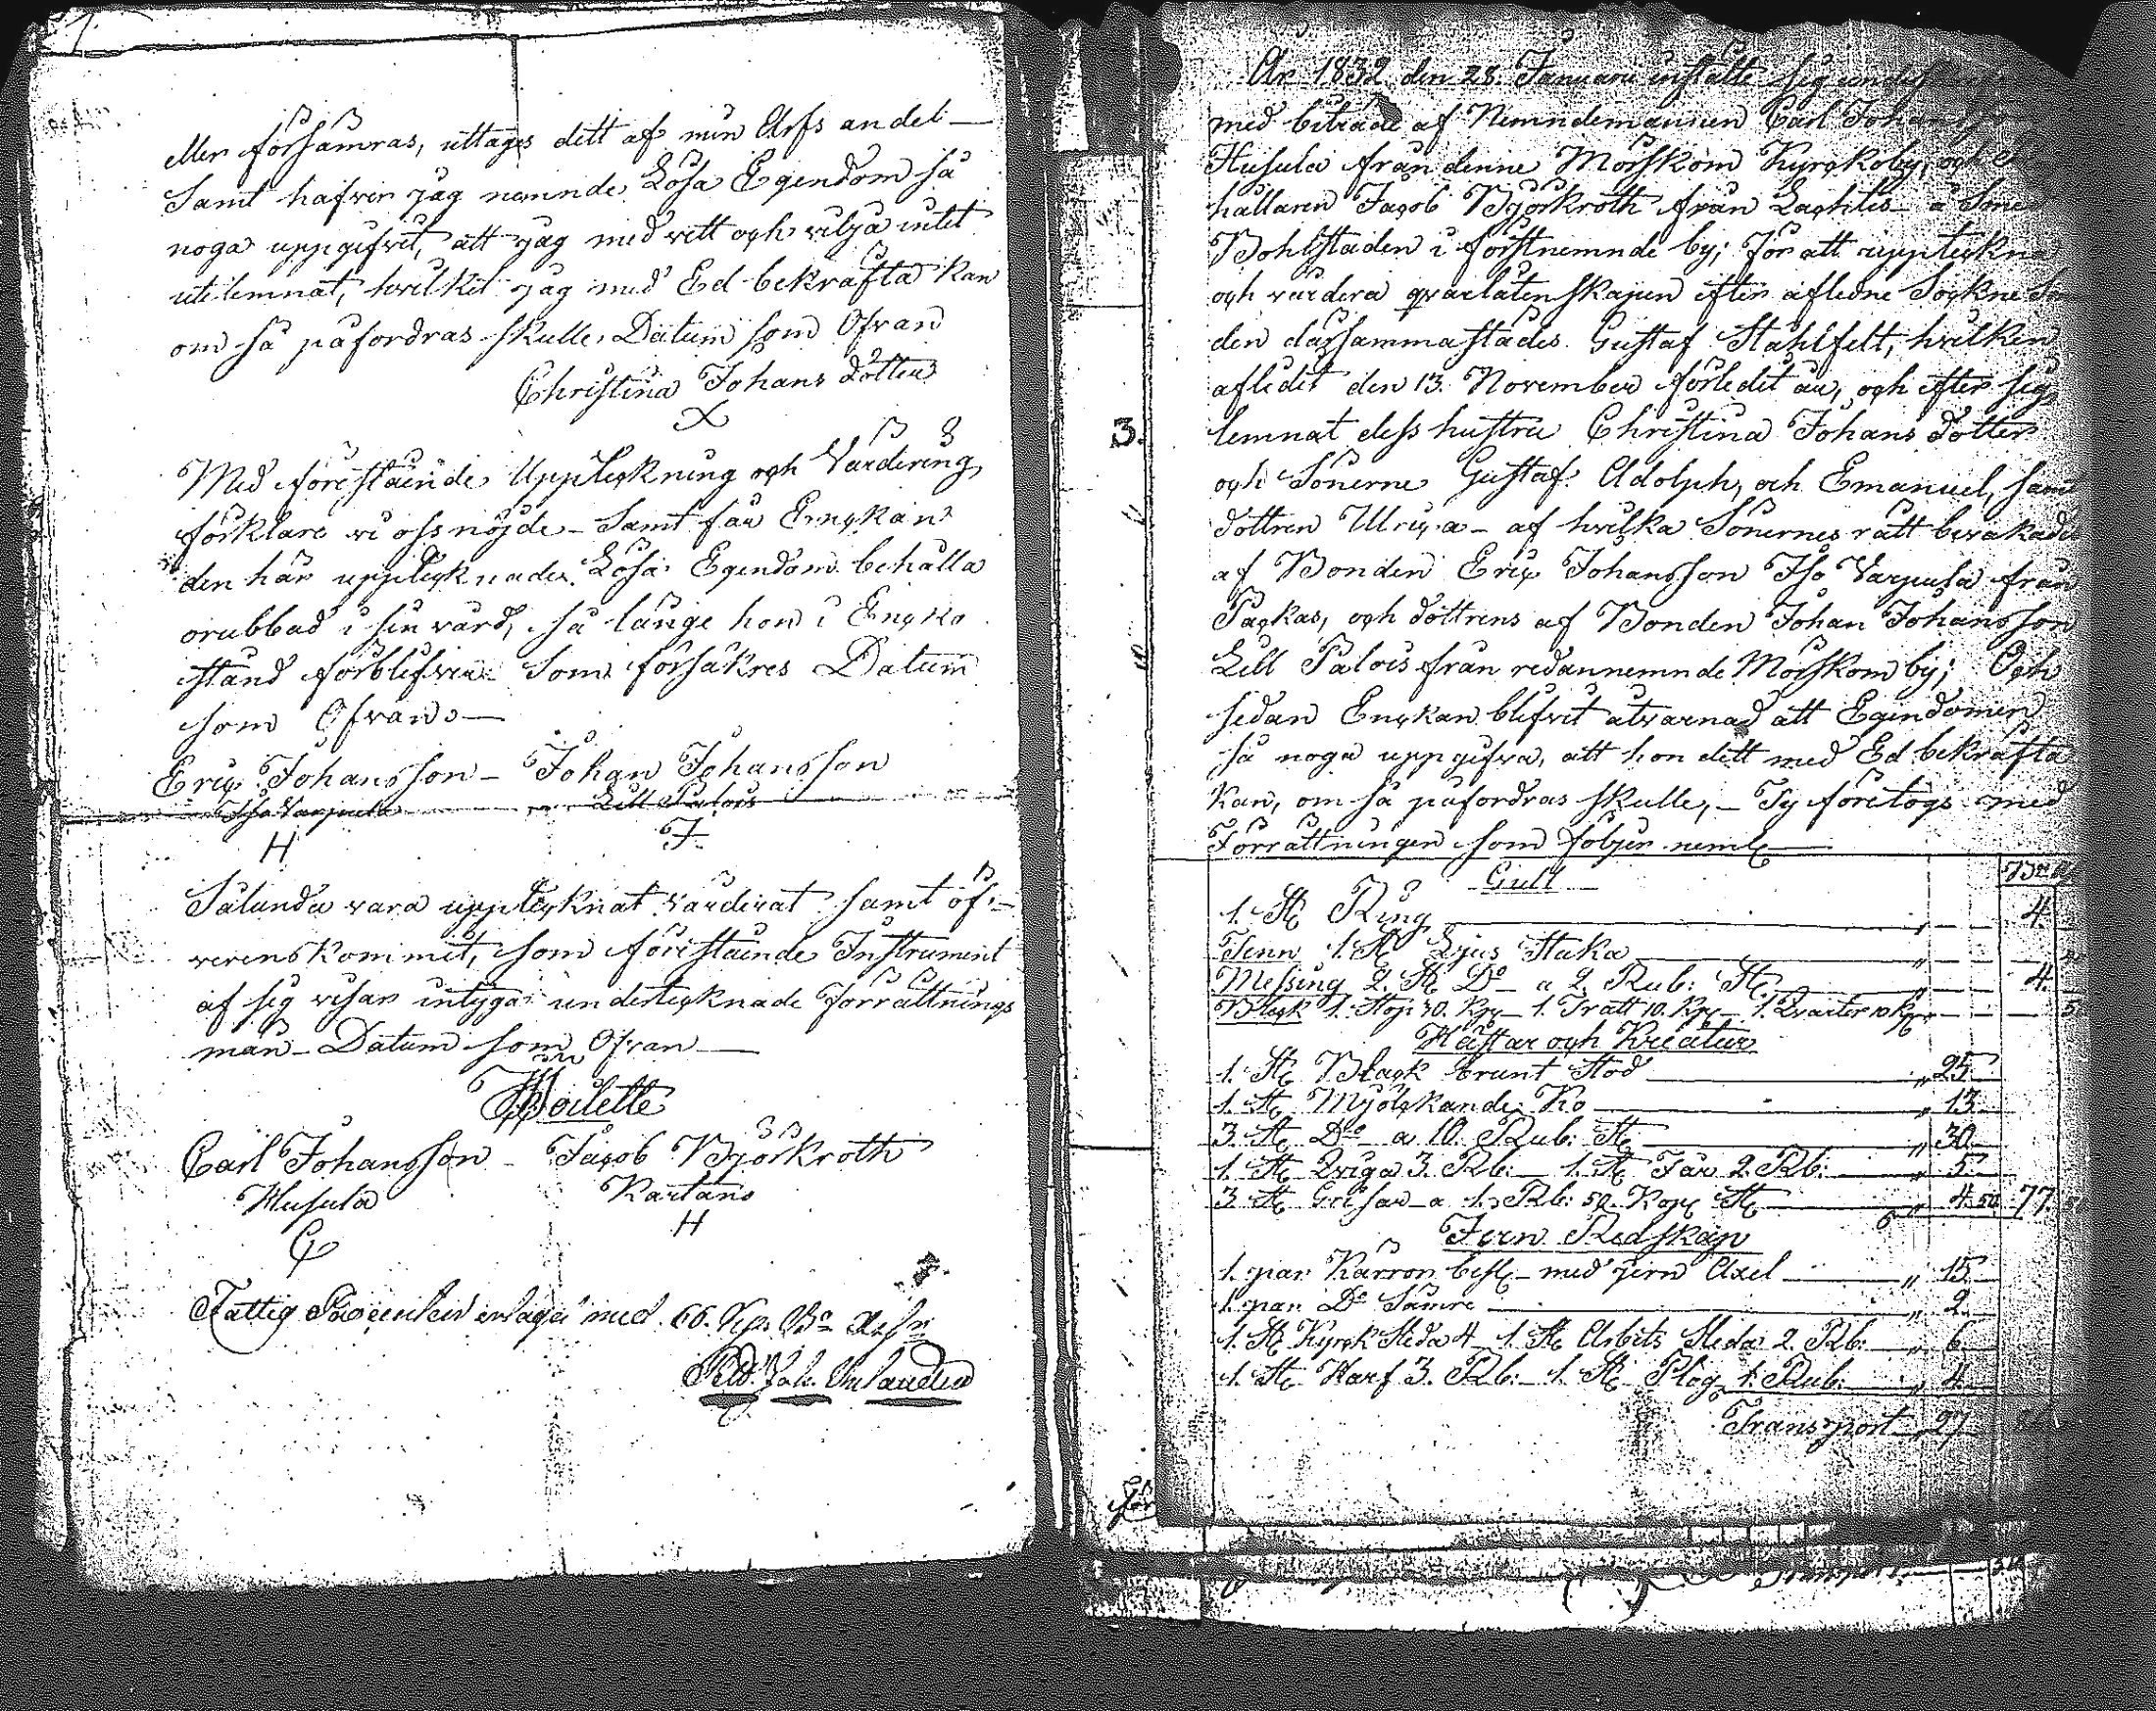 eller försämras, uttages dett af min Arfs andel –
Samt hafver jag nemnde Lösa Egendom så
noga uppgifvit, att jag med vett och vilja intet
utelemnat, hvilket jag med Ed bekräfta kan
om så påfordras skulle, Datum som Ofvan
Christina Johans dotter
X
Med föreståinde Uppteckning och Värdering
förklare vi oss nöjde – Samt får Enckan
den här upptecknade Lösa Egendom behålla
orubbad i sin vård, så länge hon i Encko
stånd förblifver – Som försäkres Datum
som Ofvan –
Eric Johansson – Johan Johansson
Iso Varpula Lill Palois
H J
Sålunda vara upptecknat värderat samt öf-
verenskommit, som föreståinde Instrument
af sig visar intyga undertecknade Förrättnings
män – Datum som Ofvan –
Carl Johansson – Jacob Björkroth
Husula Kartano
G H
Fattig Procenten erlagd med 60. Kop. B:co
År 1832 den 28. Januari instälte sig
med biträde af Nemndemannen Carl Johansson
Husula från denne Mörskom Kyrckoby, och
hållaren Jacob Björkroth från Lachtis – å
Bohlstaden i förstnemnde by; för att uppteckna
och värdera qvarlåtenskapen efter afledne Sockne
den därsammastädes Gustaf Stahlfelt, hvilken
afledit den 13. November förledit år, och efter sig
lemnat dess hustru Christina Johans dotter
och Sönerne Gustaf Adolph, och Emanuel, samt
dottren Ulrica – af hvilka Sönernes rätt bevakades
af Bonden Eric Johansson Iso Varpula från
Packas, och dottrens af Bonden Johan Johansson
Lill Palois från redannemnde Mörskom by; Och
sedan Enckan blifvit åtvarnad att Egendomen
så noga uppgifva, att hon dett med Ed bekräfta
kan, om så påfordras skulle, – Ty företogs med
Förrättningen som följer neml
3.
Gull
1. St Ring „ 4.
Tenn 1. St Ljus Staka „
Messing 2. St D:o a 2. Rub: St „ 4.
Bleck 1. Stop 30. Kop – 1. Tratt 10. Kop – 1. Qvarter 10 Kop
Hästar och Kreatur
1. St Black brunt Stod „ 25
1. St Mjölckande Ko „ 13
3. St D:o a 10. Rub: St „ 30
1. St Qviga 3. Rb: – 1. St Får 2. Rb: „ 5
3. St Grisar – a 1. Rb: 50. Kop St „ 4. 50 77.
Jern Redskap
1. par Kärror besl – med jern Axel „ 15
1. par D:o Sämre „ 2
1. St Kyrck Släda 4 1. St Arbits Släda 2. Rb: „ 6
1. St Harf 3. Rb: – 1. St Plog 1. Rub: „ 4
Transport 27